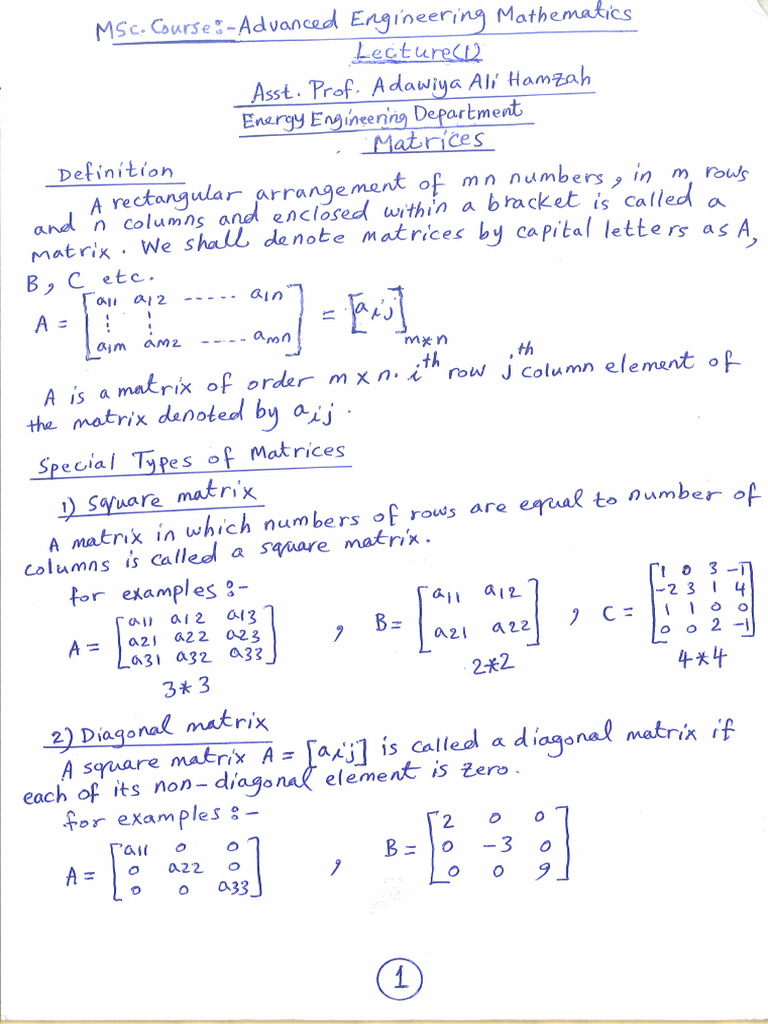 MSc. Course:- Advanced Engineering Mathematics
Lecture(1)
Asst. Prof. Adawiya Ali Hamzah
Energy Engineering Department
Matrices
Definition
A rectangular arrangement of mn numbers, in m rows
and n columns and enclosed within a bracket is called a
matrix. We shall denote matrices by capital letters as A,
B, C etc.
A = [a11 a12 ----- a1n
⋮ ⋮
a1m am2 ----- amn] = [aij] m*n
A is a matrix of order m x n. ith row jth column element of
the matrix denoted by aij.
Special Types of Matrices
1) Square matrix
A matrix in which numbers of rows are equal to number of
columns is called a square matrix.
for examples:-
A = [a11 a12 a13
a21 a22 a23
a31 a32 a33] 3*3
, B = [a11 a12
a21 a22] 2*2
, C = [1 0 3 -1
-2 3 1 4
1 1 0 0
0 0 2 -1] 4*4
2) Diagonal matrix
A square matrix A = [aij] is called a diagonal matrix if
each of its non-diagonal element is zero.
for examples:-
A = [a11 0 0
0 a22 0
0 0 a33]
, B = [2 0 0
0 -3 0
0 0 9]
1